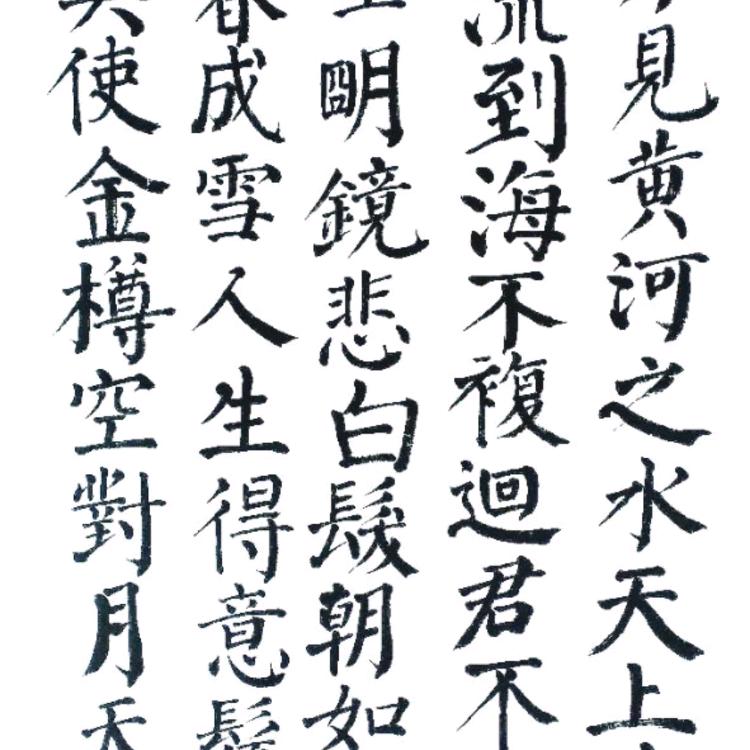 見黄河之水天上
流到海不複迴君不
明鏡悲白髮朝如
成雪人生得意
使金樽空對月天